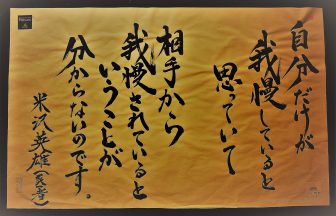 自分だけが
我慢していると
思っていて
相手から
我慢されていると
いうことが
分からないのです。
米沢英雄(医者)